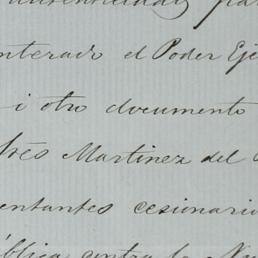 autenticidad, pa
nterado el Poder Eje
i otro documento
drés Martinez del
entantes cesionario
ública contra la